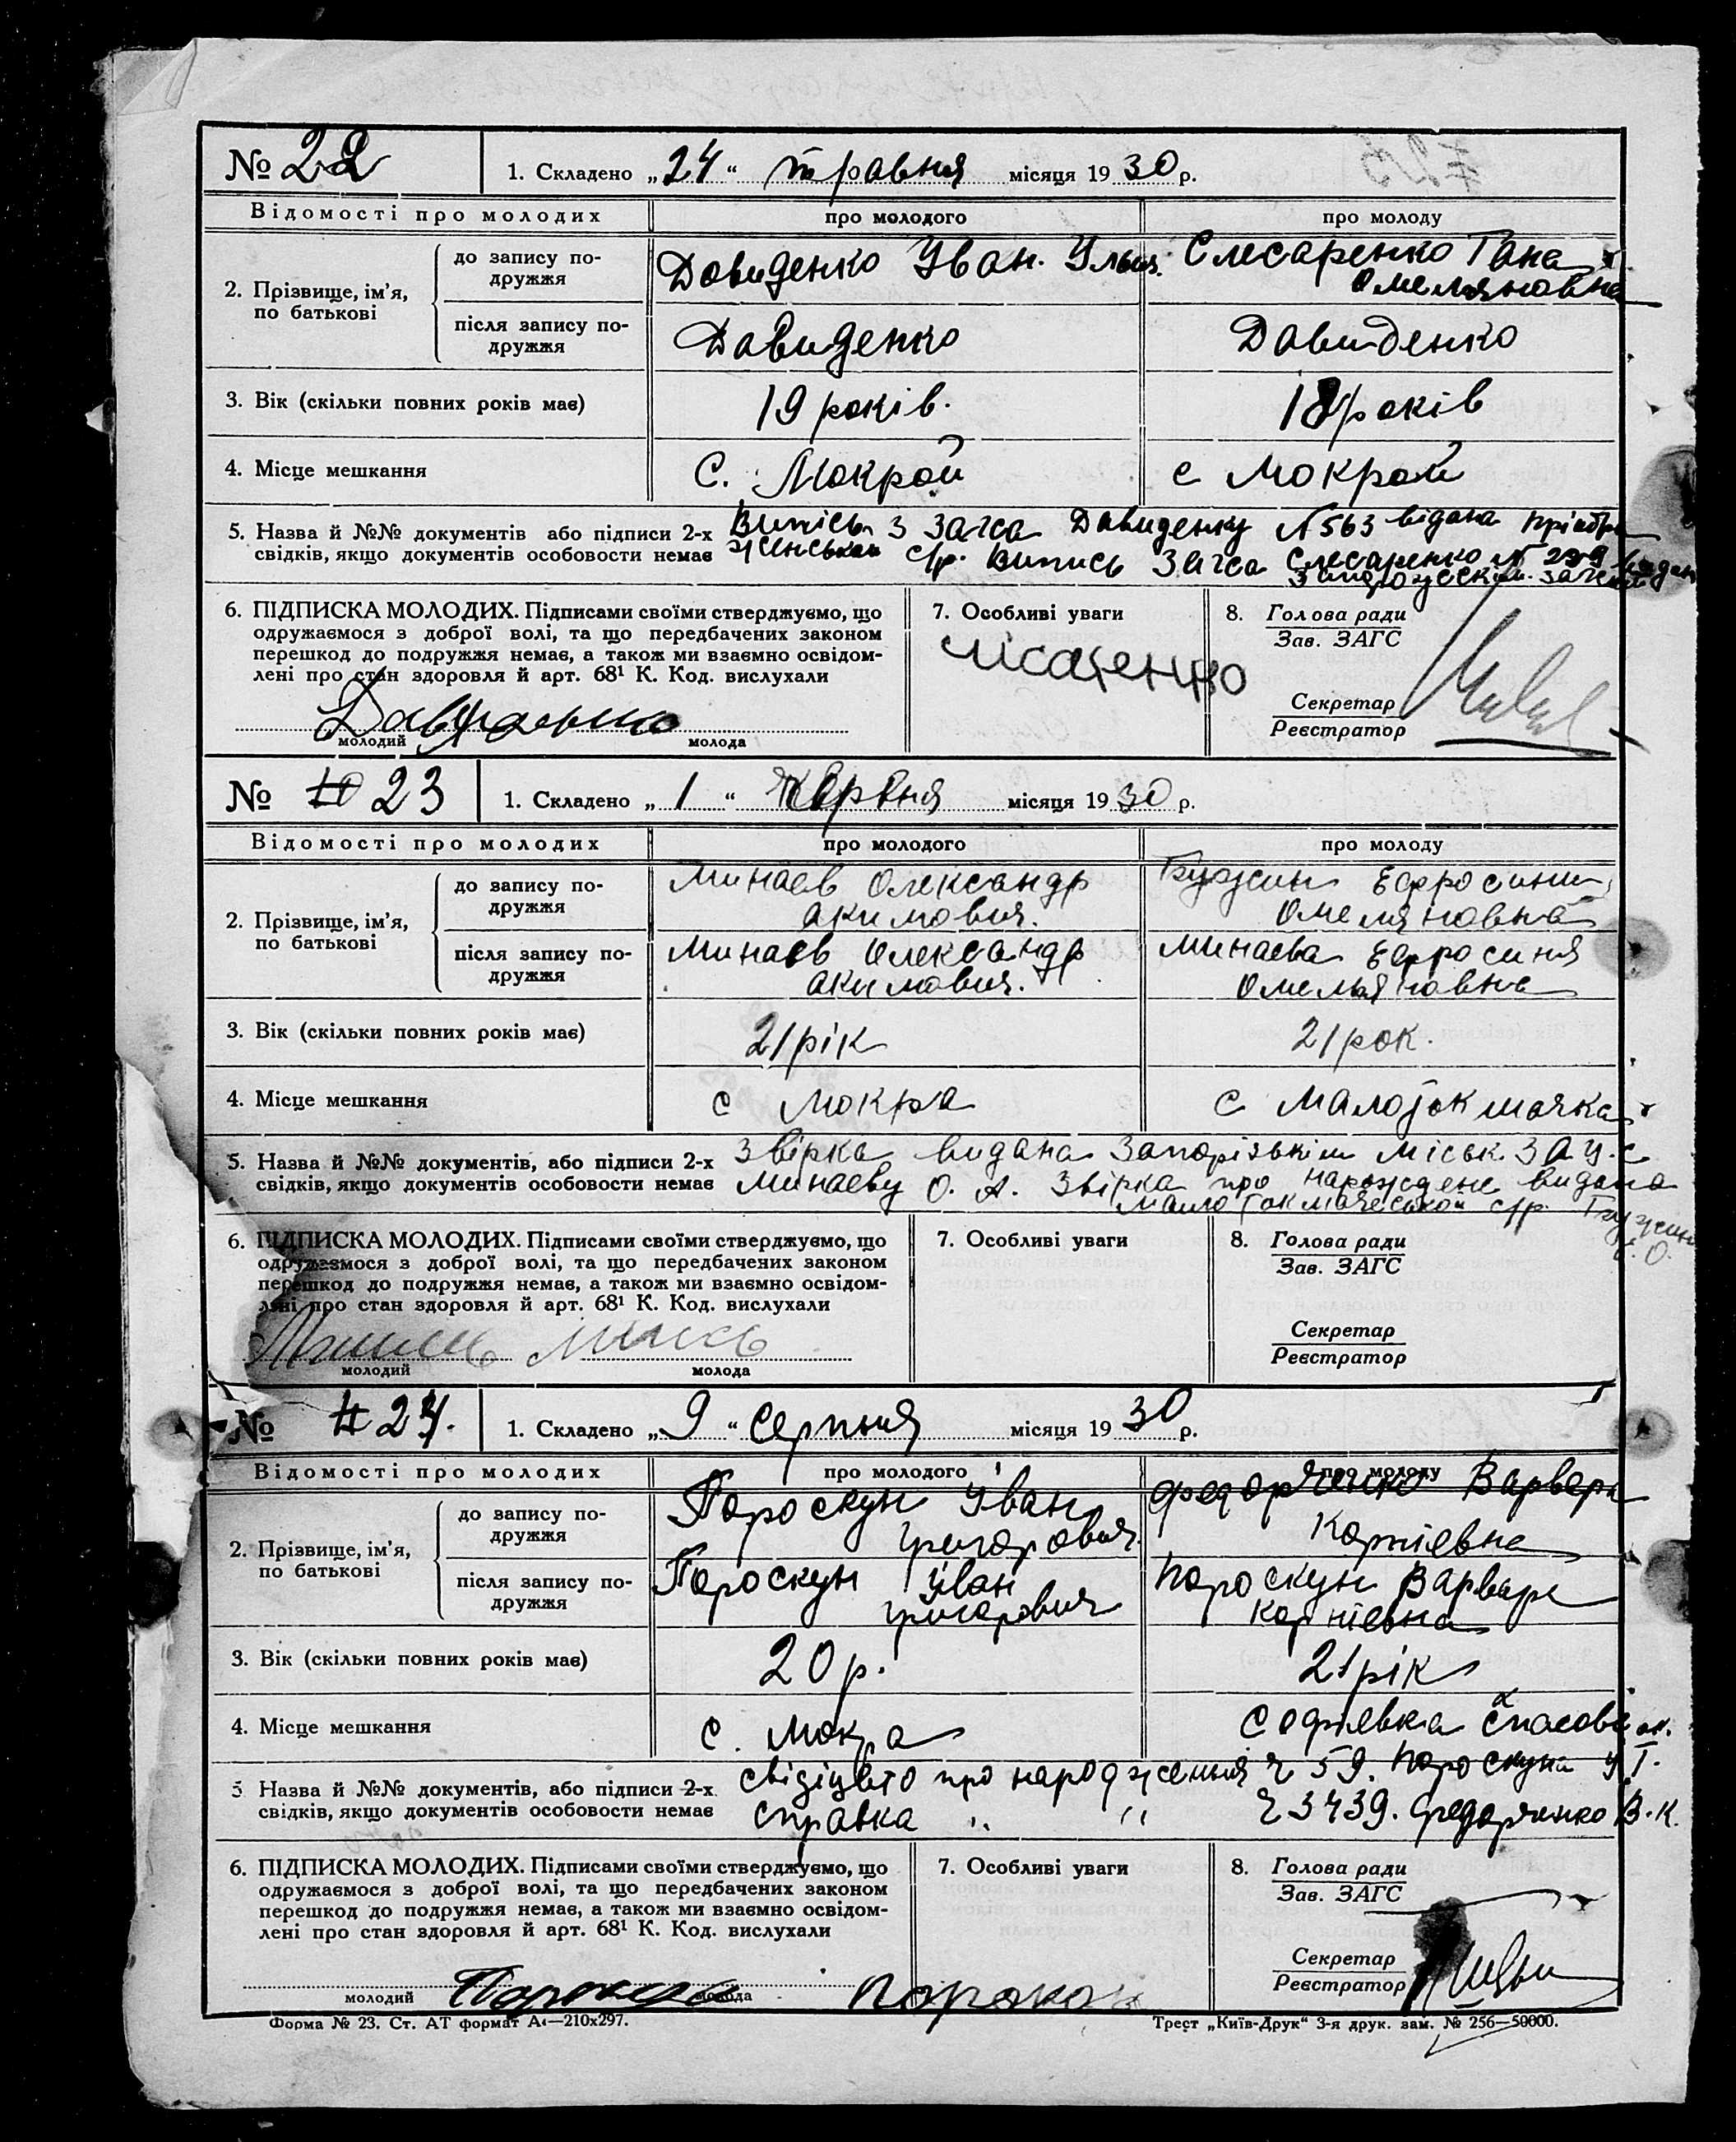 № 22
1. Складено „24“ травня місяця 1930 р.
Відомості про молодих
про молодого
про молоду
2. Прізвище, ім’я, по батькові
до запису подружжя
Давиденко Іван Ільич.
Слєсаренко Гана
Омеляновна
після запису подружжя
Давиденко
Давиденко
3. Вік (скільки повних років має)
19 років.
18 років
4. Місце мешкання
С. Мокрой
с Мокрой
5. Назва й №№ документів або підписи 2-х
свідків, якщо документів особовости немає
Випісь З Загса Давиденку N 563 відана
с/р. Випись Загса Слєсаренко N
6. ПІДПИСКА МОЛОДИХ. Підписами своїми стверджуємо, що
одружаємося з доброї волі, та що передбачених законом
перешкод до подружжя немає, а також ми взаємно освідом-
лені про стан здоровля й арт. 68¹ К. Код. вислухали
молодий
молода
7. Особливі уваги
8. Голова ради
Зав. ЗАГС
Секретар
Реєстратор
№ 23
1. Складено „1“ місяця 1930 р.
Відомості про молодих
про молодого
про молоду
2. Прізвище, ім’я, по батькові
до запису подружжя
Минаєв Олександр
акимович.
Єфросиния
Омеляновна
після запису подружжя
Минаєв Олександр
акимович.
Минаева Єфросиния
Омельяновна
3. Вік (скільки повних років має)
21 рік
21 рок.
4. Місце мешкання
с Мокра
с Малотокмачка
5. Назва й №№ документів, або підписи 2-х
свідків, якщо документів особовости немає
Звірка видана Запорізьким міськ. ЗАГ.с
Минаеву О. А. Звірка про нарождене видана
с/р.
6. ПІДПИСКА МОЛОДИХ. Підписами своїми стверджуємо, що
одружаємося з доброї волі, та що передбачених законом
перешкод до подружжя немає, а також ми взаємно освідом-
лені про стан здоровля й арт. 68¹ К. Код. вислухали
молодий
молода
7. Особливі уваги
8. Голова ради
Зав. ЗАГС
Секретар
Реєстратор
№ 24.
1. Складено „9“ Серпня місяця 1930 р.
Відомості про молодих
про молодого
про молоду
2. Прізвище, ім’я, по батькові
до запису подружжя
Пороскун Іван
Григорович
Федорченко Варвара
Корнієвна
після запису подружжя
Пороскун Іван
Григорович
Пороскун Варвара
Корнієвна
3. Вік (скільки повних років має)
20 р.
21 рік
4. Місце мешкання
с. Мокра
Софіевка
5 Назва й №№ документів, або підписи 2-х
свідків, якщо документів особовости немає
свідіцвто про народження ч 59. Пороскуна І Г.
справка „ “ ч 3439. Федорченко В. К.
6. ПІДПИСКА МОЛОДИХ. Підписами своїми стверджуємо, що
одружаємося з доброї волі, та що передбачених законом
перешкод до подружжя немає, а також ми взаємно освідом-
лені про стан здоровля й арт. 68¹ К. Код. вислухали
молодий
молода
7. Особливі уваги
8. Голова ради
Зав. ЗАГС
Секретар
Реєстратор
Форма № 23. Ст. АТ формат А4—210x297.
Трест „Київ-Друк“ 3-я друк. зам. № 256—50000.